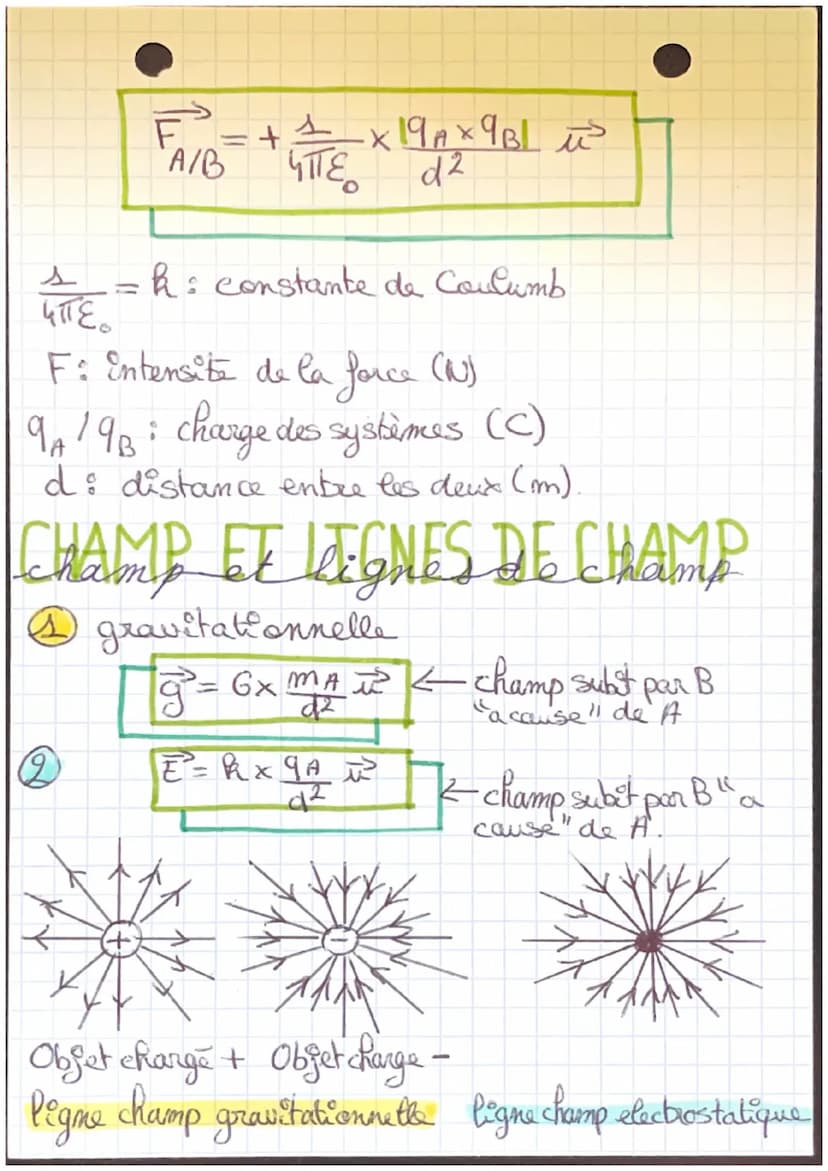 F⃗A/B = + 1/4πε₀ × |qA × qB|/d² u⃗
1/4πε₀ = k : constante de Coulumb
F : intensité de la force (N)
qA / qB : charge des systèmes (C)
d : distance entre les deux (m).
CHAMP ET LIGNES DE CHAMP
champ et lignes de champ
1 gravitationnelle
g⃗ = G × mA/d² u⃗ ← champ subit par B
"a cause" de A
2 E⃗ = k × qA/d² u⃗ ← champ subit par B "a
cause" de A.
+ -
Objet chargé + Objet charge -
ligne champ gravitationnelle ligne champ electrostatique